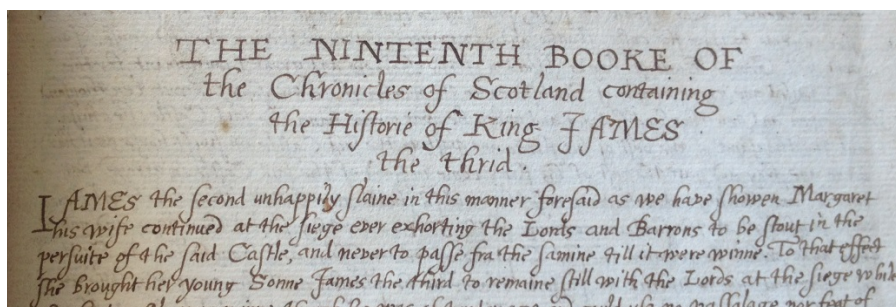 THE NINTENTH BOOKE OF
the Chronicles of Scotland containing
the Historie of King JAMES
the thrid.
IAMES the second unhappily slaine in this manner foresaid as we have showen Margaret
his wife continued at the siege ever exhorting the Lords and Barrons to be stout in the
persuite of the said Castle, and never to passe fra the samine till it were winne. To that effect
she brought her young Sonne James the third to remaine still with the Lords at the siege